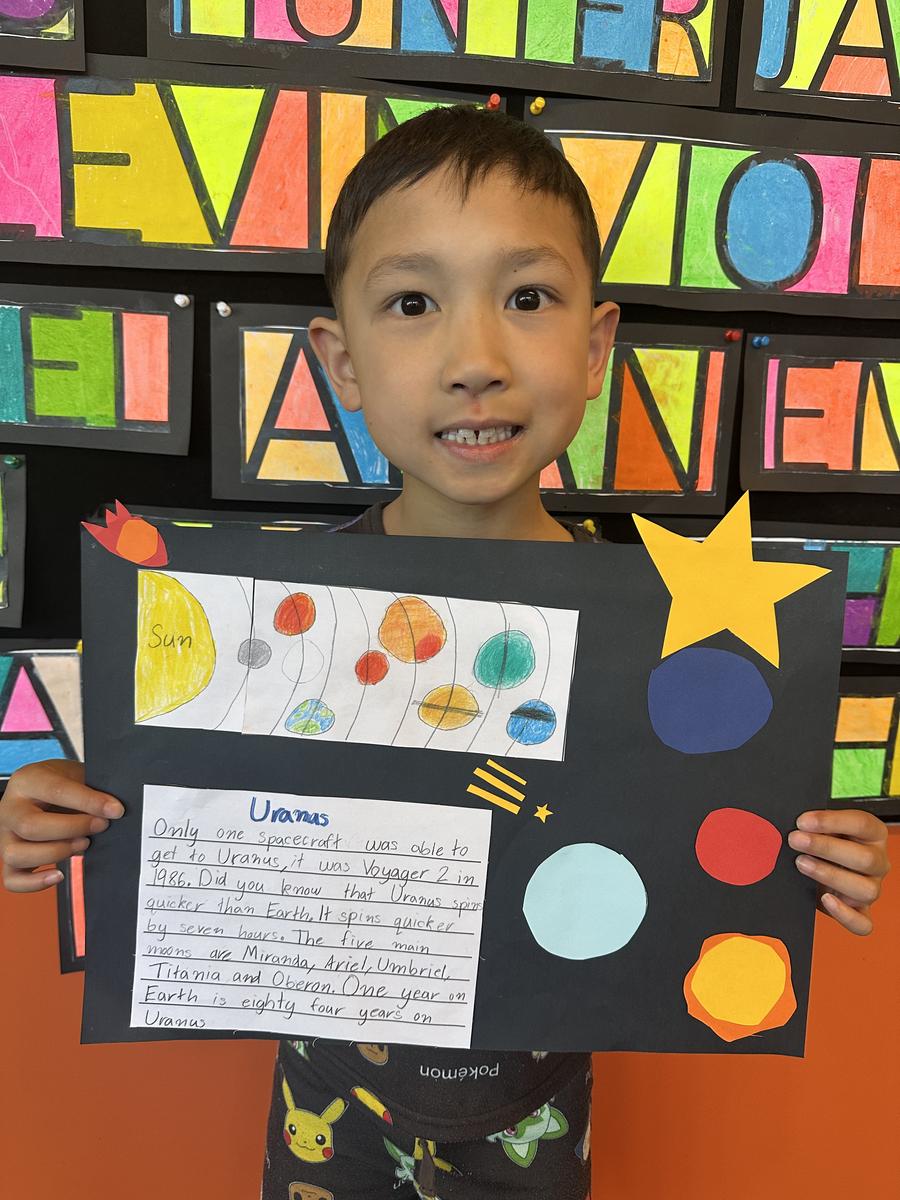 UNERJA
EVIN
VIOI
EI
A
ANN
EN
Sun
Uranus
Only one spacecraft was able to
get to Uranus, it was Voyager 2 in
1986. Did you know that Uranus spins
quicker than Earth. It spins quicker
by seven hours. The five main
moons are Miranda, Ariel, Umbriel,
Titania and Oberon. One year on
Earth is eighty four years on
Uranus
pokémon